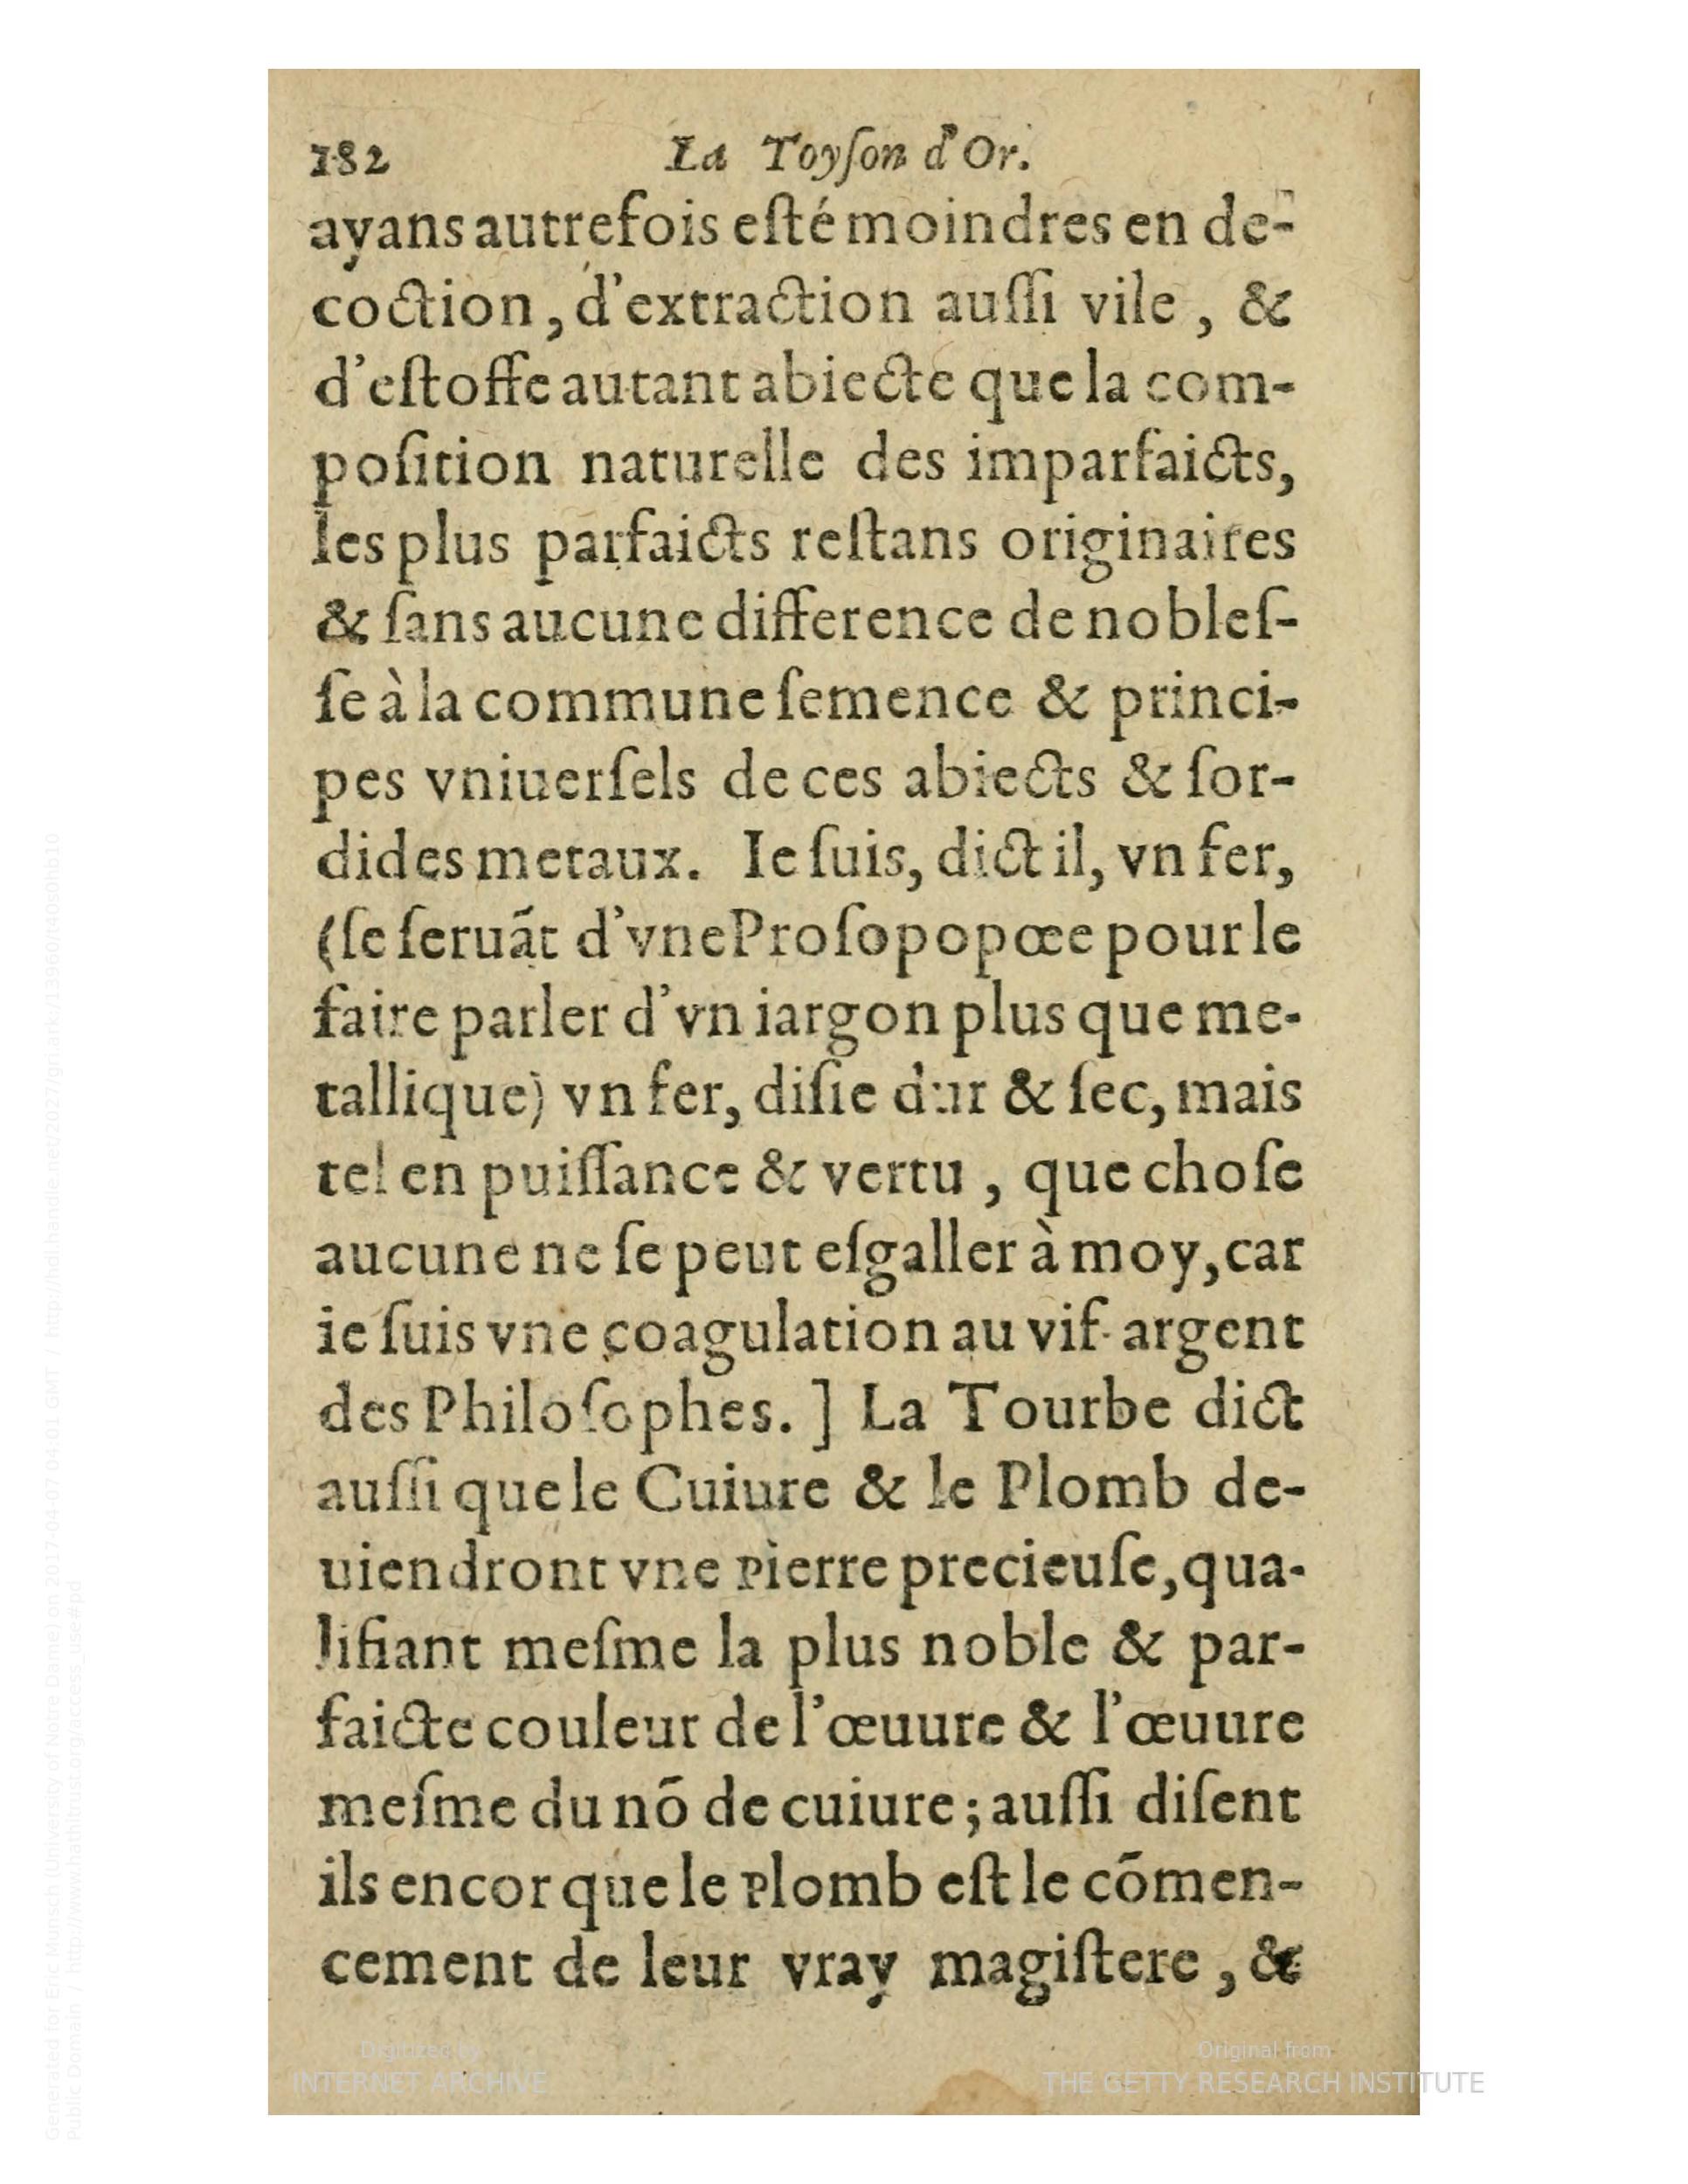 182 La Toyſon d'Or.
ayans autrefois eſté moindres en de-
coction, d'extraction auſſi vile, &
d'eſtoffe autant abiecte que la com-
poſition naturelle des imparfaicts,
les plus parfaicts reſtans originaires
& ſans aucune difference de nobleſ-
ſe à la commune ſemence & princi-
pes vniuerſels de ces abiects & ſor-
dides metaux. Ie ſuis, dict il, vn fer,
(ſe ſeruãt d'vne Proſopopœe pour le
faire parler d'vn iargon plus que me-
tallique) vn fer, diſie dur & ſec, mais
tel en puiſſance & vertu, que choſe
aucune ne ſe peut eſgaller à moy, car
ie ſuis vne coagulation au vif-argent
des Philoſophes. ] La Tourbe dict
auſſi que le Cuiure & le Plomb de-
uiendront vne Pierre precieuſe, qua-
lifiant meſme la plus noble & par-
faicte couleur de l'œuure & l'œuure
meſme du nõ de cuiure; auſſi diſent
ils encor que le Plomb eſt le cõmen-
cement de leur vray magiſtere, &
Digitized by
INTERNET ARCHIVE
Original from
THE GETTY RESEARCH INSTITUTE
Generated for Eric Munsch (University of Notre Dame) on 2017-04-07 04:01 GMT / http://hdl.handle.net/2027/gri.ark:/13960/t40s0hb10
Public Domain / http://www.hathitrust.org/access_use#pd